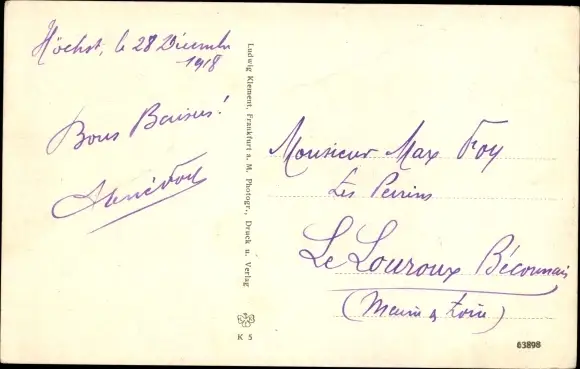 Höchst, le 28 Décembre
1918
Bons Baisers!
Ludwig Klement, Frankfurt a. M. Photogr., Druck u. Verlag
K 5
Monsieur Max Foy
Les Perrins
Le Louroux Béconnais
(Maine & Loire)
63898